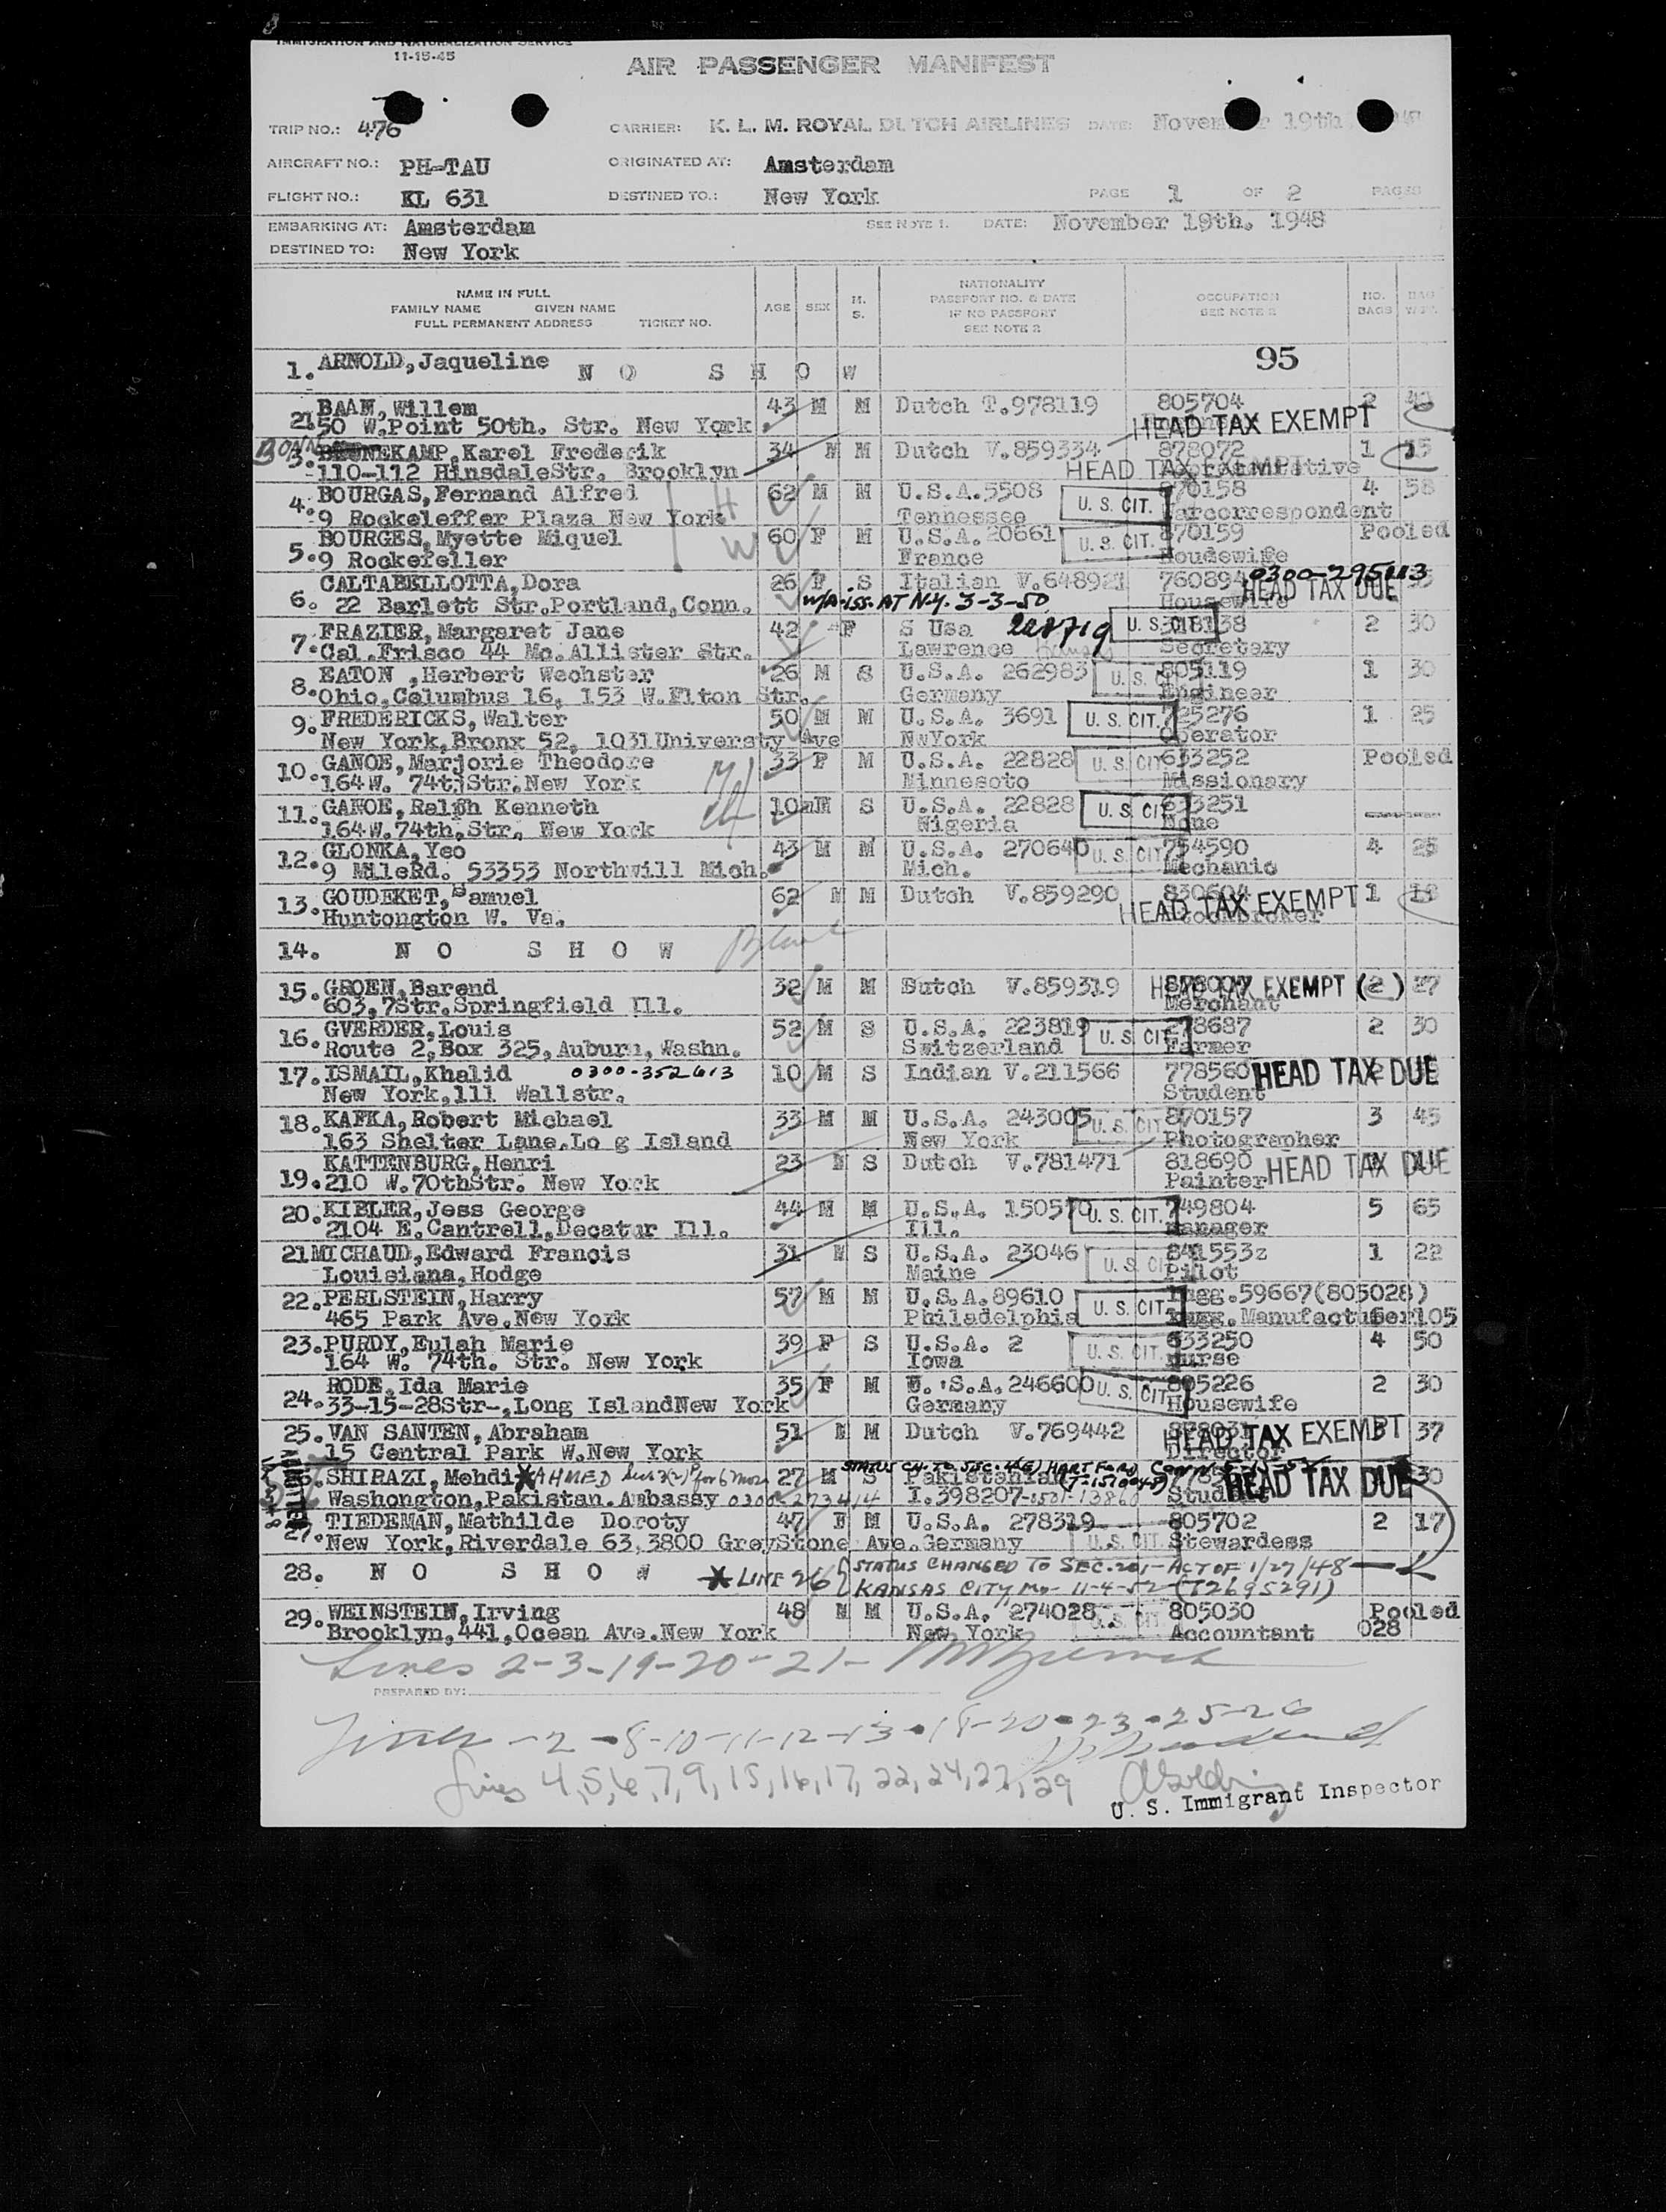 IMMIGRATION AND NATURALIZATION SERVICE
11-15-45
AIR PASSENGER MANIFEST
TRIP NO.: 476 CARRIER: K. L. M. ROYAL DUTCH AIRLINES DATE: November 19th
AIRCRAFT NO.: PH-TAU ORIGINATED AT: Amsterdam
FLIGHT NO.: KL 631 DESTINED TO.: New York PAGE 1 OF 2 PAGES
EMBARKING AT: Amsterdam SEE NOTE 1. DATE: November 19th. 1948
DESTINED TO: New York
NAME IN FULL
FAMILY NAME GIVEN NAME
FULL PERMANENT ADDRESS TICKET NO.
AGE SEX M. S.
NATIONALITY
PASSPORT NO. & DATE
IF NO PASSPORT
SEE NOTE 2
OCCUPATION
SEE NOTE 2
NO. BAGS BAG
95
1. ARNOLD,Jaqueline N O S H O W
2. BAAN, Willem 43 M M Dutch T.978119 805704 2
150 W.Point 50th. Str. New York HEAD TAX EXEMPT
3. KAMP,Karel Frederik 34 M M Dutch V.859334 878072 1 15
110-112 HinsdaleStr. Brooklyn HEAD TAX EXEMPT
4. BOURGAS,Fernand Alfred 62 M M U.S.A.5508 U. S. CIT. 870158 4 58
9 Rockeleffer Plaza New York H Tennessee Warcorrespondent
5. BOURGES,Myette Miquel 60 F M U.S.A.20661 U. S. CIT. 870159 Pooled
9 Rockefeller W France Housewife
6. CALTABELLOTTA,Dora 26 F S Italian V.64892 760894 0300-295113
22 Barlett Str.Portland,Conn. W/A iss. AT N.Y. 3-3-50 Housewife HEAD TAX DUE
7. FRAZIER,Margaret Jane 42 F S Usa 228719 U. S. CIT. 318138 2 30
Cal.Frisco 44 Mc.Allister Str. Lawrence Kansas Secretary
8. EATON ,Herbert Wechster 26 M S U.S.A. 262983 U. S. C 805119 1 30
Ohio,Columbus 16, 153 W.Elton Str. Germany Engineer
9. FREDERICKS,Walter 50 M M U.S.A. 3691 U. S. CIT. 725276 1 25
New York,Bronx 52, 1031Universty Ave NwYork Operator
10. GANOE,Marjorie Theodore 33 F M U.S.A. 22828 U. S. CIT 633252 Pooled
164W. 74t.Str.New York Minnesoto Missionary
11. GANOE,Ralph Kenneth 10 M S U.S.A. 22828 U. S. CIT 633251
164W.74th.Str. New York Nigeria None
12. GLONKA,Yeo 43 M M U.S.A. 270640 U. S. CIT 754590 4 25
9 MileRd. 53353 Northwill Mich. Mich. Mechanic
13. GOUDEKET,Samuel 62 M M Dutch V.859290 830604 1 18
Huntongton W. Va. HEAD TAX EXEMPT
14. N O S H O W
15. GROEN,Barend 32 M M Dutch V.859319 (2) 27
603,7Str.Springfield Ill. HEAD TAX EXEMPT Merchant
16. GVERDER,Louis 52 M S U.S.A. 223819 U. S. CIT 278687 2 30
Route 2,Box 325,Auburn, Washn. Switzerland Farmer
17. ISMAIL,Khalid 0300-352613 10 M S Indian V.211566 778560 HEAD TAX DUE
New York,111 Wallstr. Student
18. KAFKA,Robert Michael 33 M M U.S.A. 243005 U. S. CIT 870157 3 45
163 Shelter Lane.Lo g Island New York Photographer
19. KATTENBURG,Henri 23 M S Dutch V.781471 818690 HEAD TAX DUE
210 W.70thStr. New York Painter
20. KIBLER,Jess George 44 M M U.S.A. 150570 U. S. CIT. 749804 5 65
2104 E.Cantrell,Decatur Ill. Ill. manager
21 MICHAUD,Edward Francis 31 M S U.S.A. 23046 U. S. CI 841553z 1 22
Louisiana,Hodge Maine Pilot
22. PERLSTEIN,Harry 57 M M U.S.A.89610 U. S. CIT .59667(805028)
465 Park Ave.New York Philadelphia Manufacturer 105
23. PURDY,Eulah Marie 39 F S U.S.A. 2 U. S. CIT. 633250 4 50
164 W. 74th. Str. New York Iowa nurse
24. RODE,Ida Marie 35 F M U.S.A.246600 U. S. CIT 805226 2 30
33-15-28Str-,Long IslandNew York Germany Housewife
25. VAN SANTEN,Abraham 51 M M Dutch V.769442 37
15 Central Park W.New York HEAD TAX EXEMPT Director
26. SHIRAZI,Mehdi * AHMED 27 M S Pakistanian HEAD TAX DUE 30
STATUS CH. TO SEC. 4(E) HARTFORD CONN
Washongton,Pakistan.Ambassy 0300-273414 I.398207 Student
27. TIEDEMAN,Mathilde Doroty 47 F M U.S.A. 278319 805702 2 17
New York,Riverdale 63,3800 GreyStone Ave.Germany U. S. CIT. Stewardess
28. N O S H O W * LINE 26 { STATUS CHANGED TO SEC. 201- ACT OF 1/27/48
KANSAS CITY Mo- 11-4-52 (T2695291)
29. WEINSTEIN,Irving 48 M M U.S.A. 274028 U.S. CIT 805030 Pooled
Brooklyn,441,Ocean Ave.New York New York Accountant 028
Lines 2-3-19-20-21-
PREPARED BY:
Lines -2-8-10-11-12-13-18-20-23-25-26
Lines 4,5,6,7,9,15,16,17,22,24,27,29
U. S. Immigrant Inspector